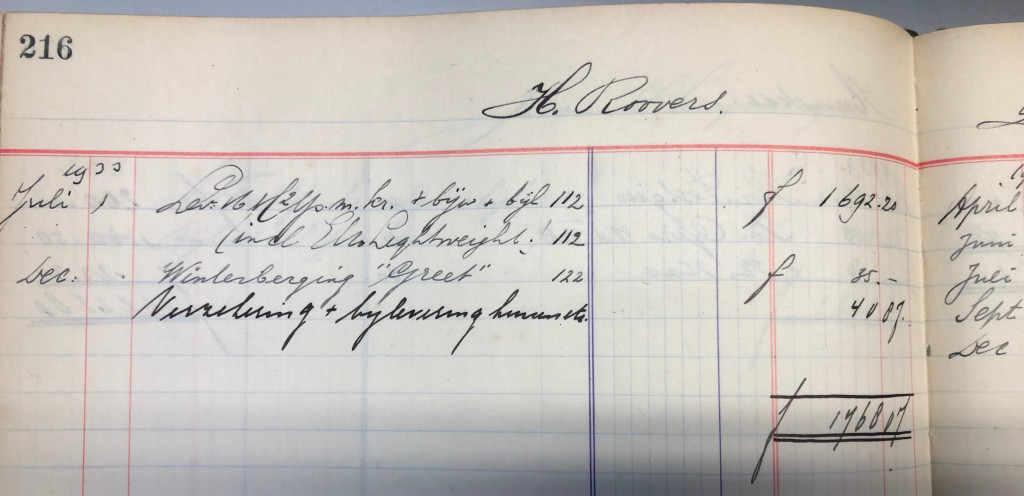 216
H. Roovers.
1933
Juli , Lev: 16 m. kr. + bijw + bijl 112 f 1692.20
(incl Elto Lightweight. 112
Dec: Winterberging "Greet" 122 f 35.-
Verzekering + bijlevering 40 87.
f 1768 07
April
Juni
Juli
Sept
Dec